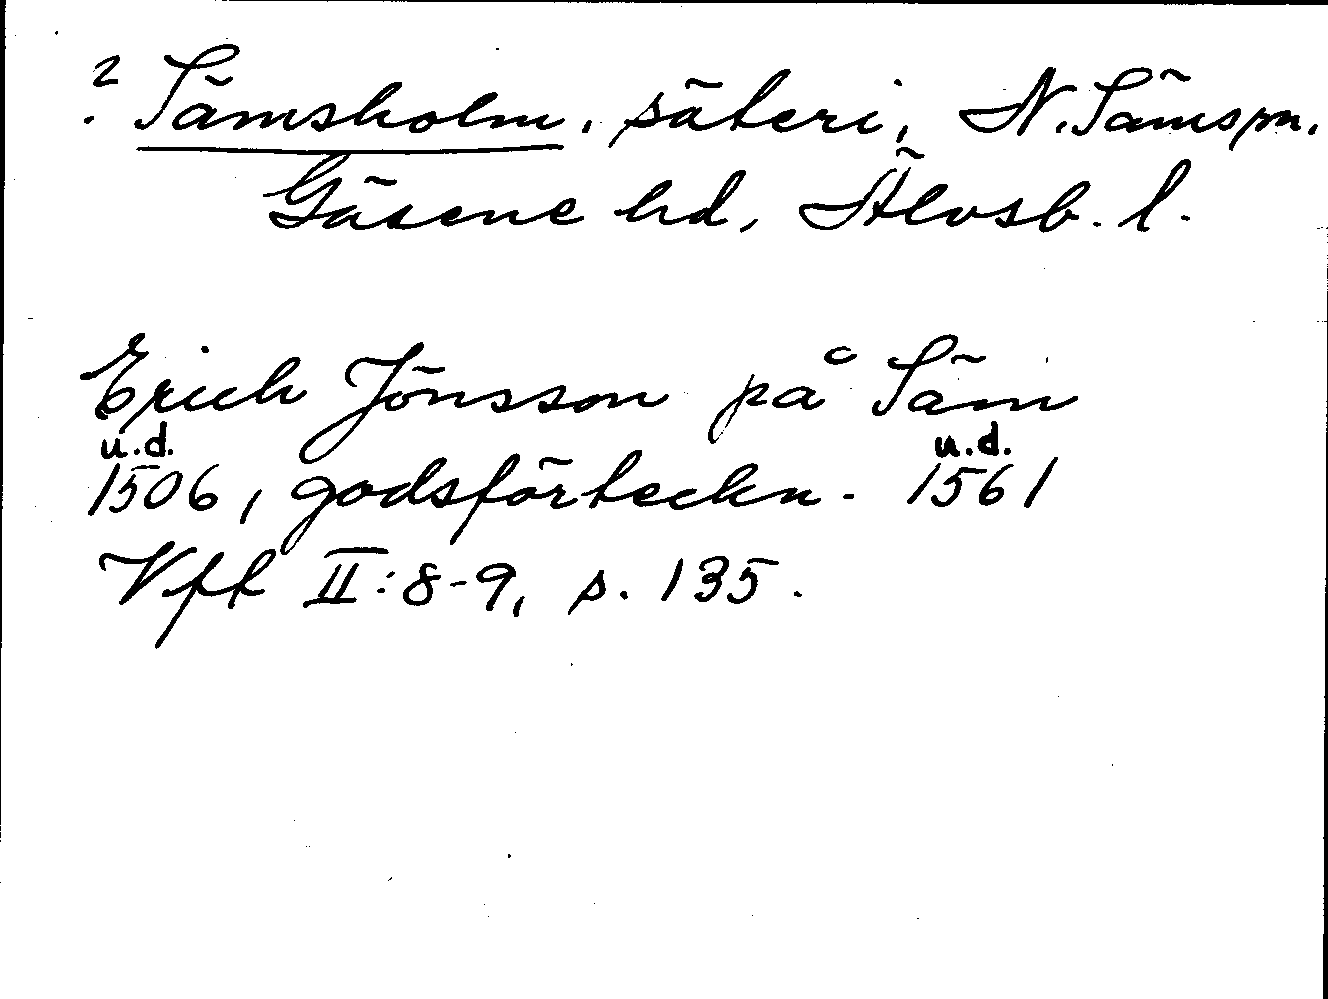 ? Sämsholm, säteri, N. Säms sn.
Gäsene hd, Älvsb. l.
Erich Jönsson på Säm
u.d. u.d.
1506, godsförteckn. 1561
Vfft II:8-9, s. 135.